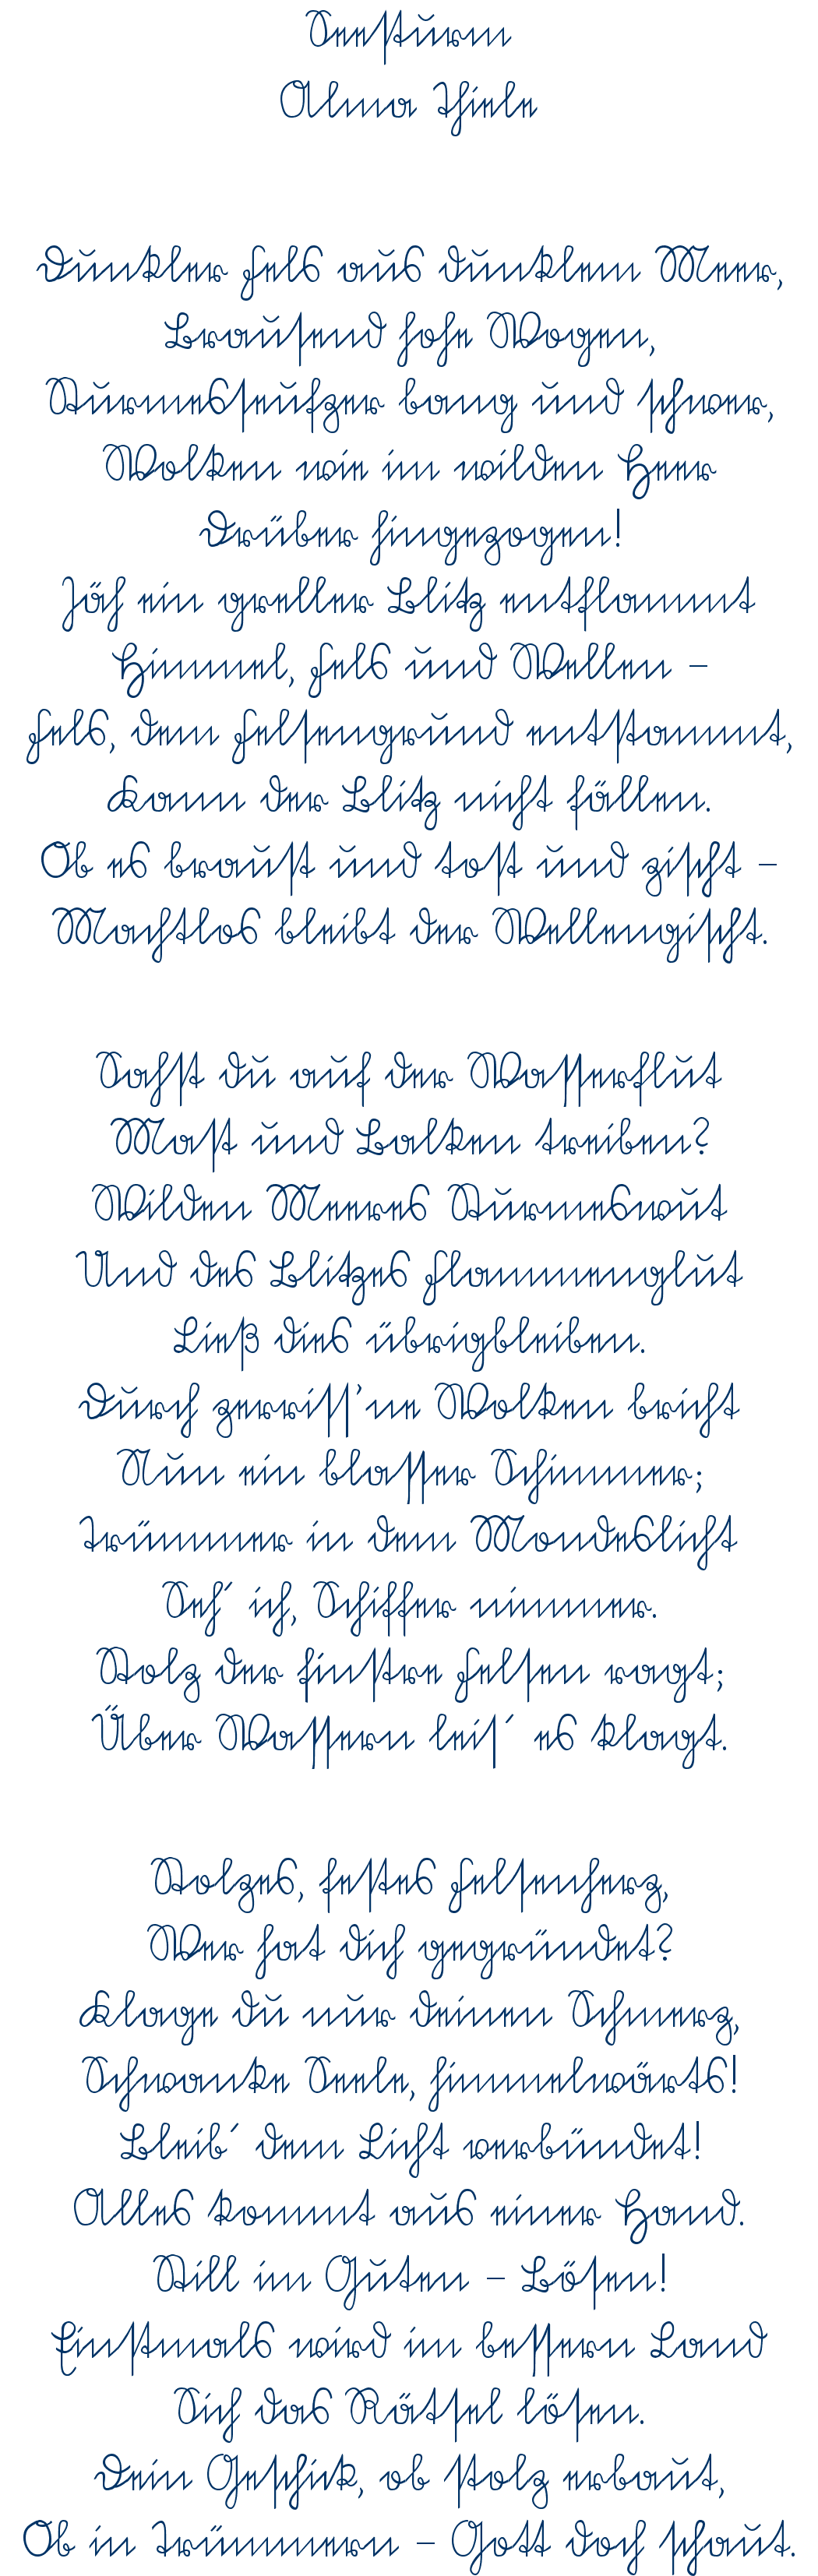 Seesturm
Alma Thiele
Dunkler Fels aus dunklem Meer,
Brausend hohe Wogen,
Sturmesseufzer bang und schwer,
Wolken wie im wilden Heer
Drüber hingezogen!
Jäh ein greller Blitz entflammt
Himmel, Fels und Wellen –
Fels, dem Felsengrund entstammt,
Kann der Blitz nicht fällen.
Ob es braust und tost und zischt –
Machtlos bleibt der Wellengischt.
Sahst du auf der Wasserflut
Mast und Balken treiben?
Wilden Meeres Sturmeswut
Und des Blitzes Flammenglut
Ließ dies übrigbleiben.
Durch zerriss'ne Wolken bricht
Nun ein blasser Schimmer;
Trümmer in dem Mondeslicht
Seh´ ich, Schiffer nimmer.
Stolz der finstre Felsen ragt;
Über Wassern leis´ es klagt.
Stolzes, festes Felsenherz,
Wer hat dich gegründet?
Klage du nur deinen Schmerz,
Schwanke Seele, himmelwärts!
Bleib´ dem Licht verbündet!
Alles kommt aus einer Hand.
Still im Guten – Bösen!
Einstmals wird im bessern Land
Sich das Rätsel lösen.
Dein Geschick, ob stolz erbaut,
Ob in Trümmern – Gott doch schaut.